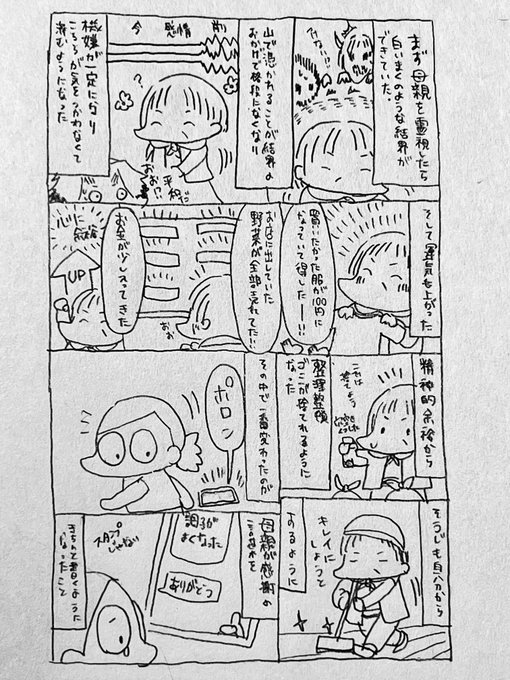 まず母親を霊視したら
白いまくのような結界が
できていた。
いけない!?
山で憑かれることが結界の
おかげで格段になくなり
前
感情
今
?
平和だ
おぉ!?
機嫌が一定になり
こちらが気をつかわなくて
済むようになった
そして運気も上がった
買いたかった服が100円に
なっていて得したー!!
お店に出していた
野菜が全部売れてた!!
おぉ
お金が少し入ってきた
UP
心に余裕
精神的余裕から
これは
捨てよう
整理整頓
ゴミが捨てれるように
なった
その中で一番変わったのが
ポロン
そうじも自分から
キレイに
しようと
するように
母親が感謝の
言葉を
調子が
よくなった
ありがとう
スタンプ
じゃない
きちんと書くように
なったこと